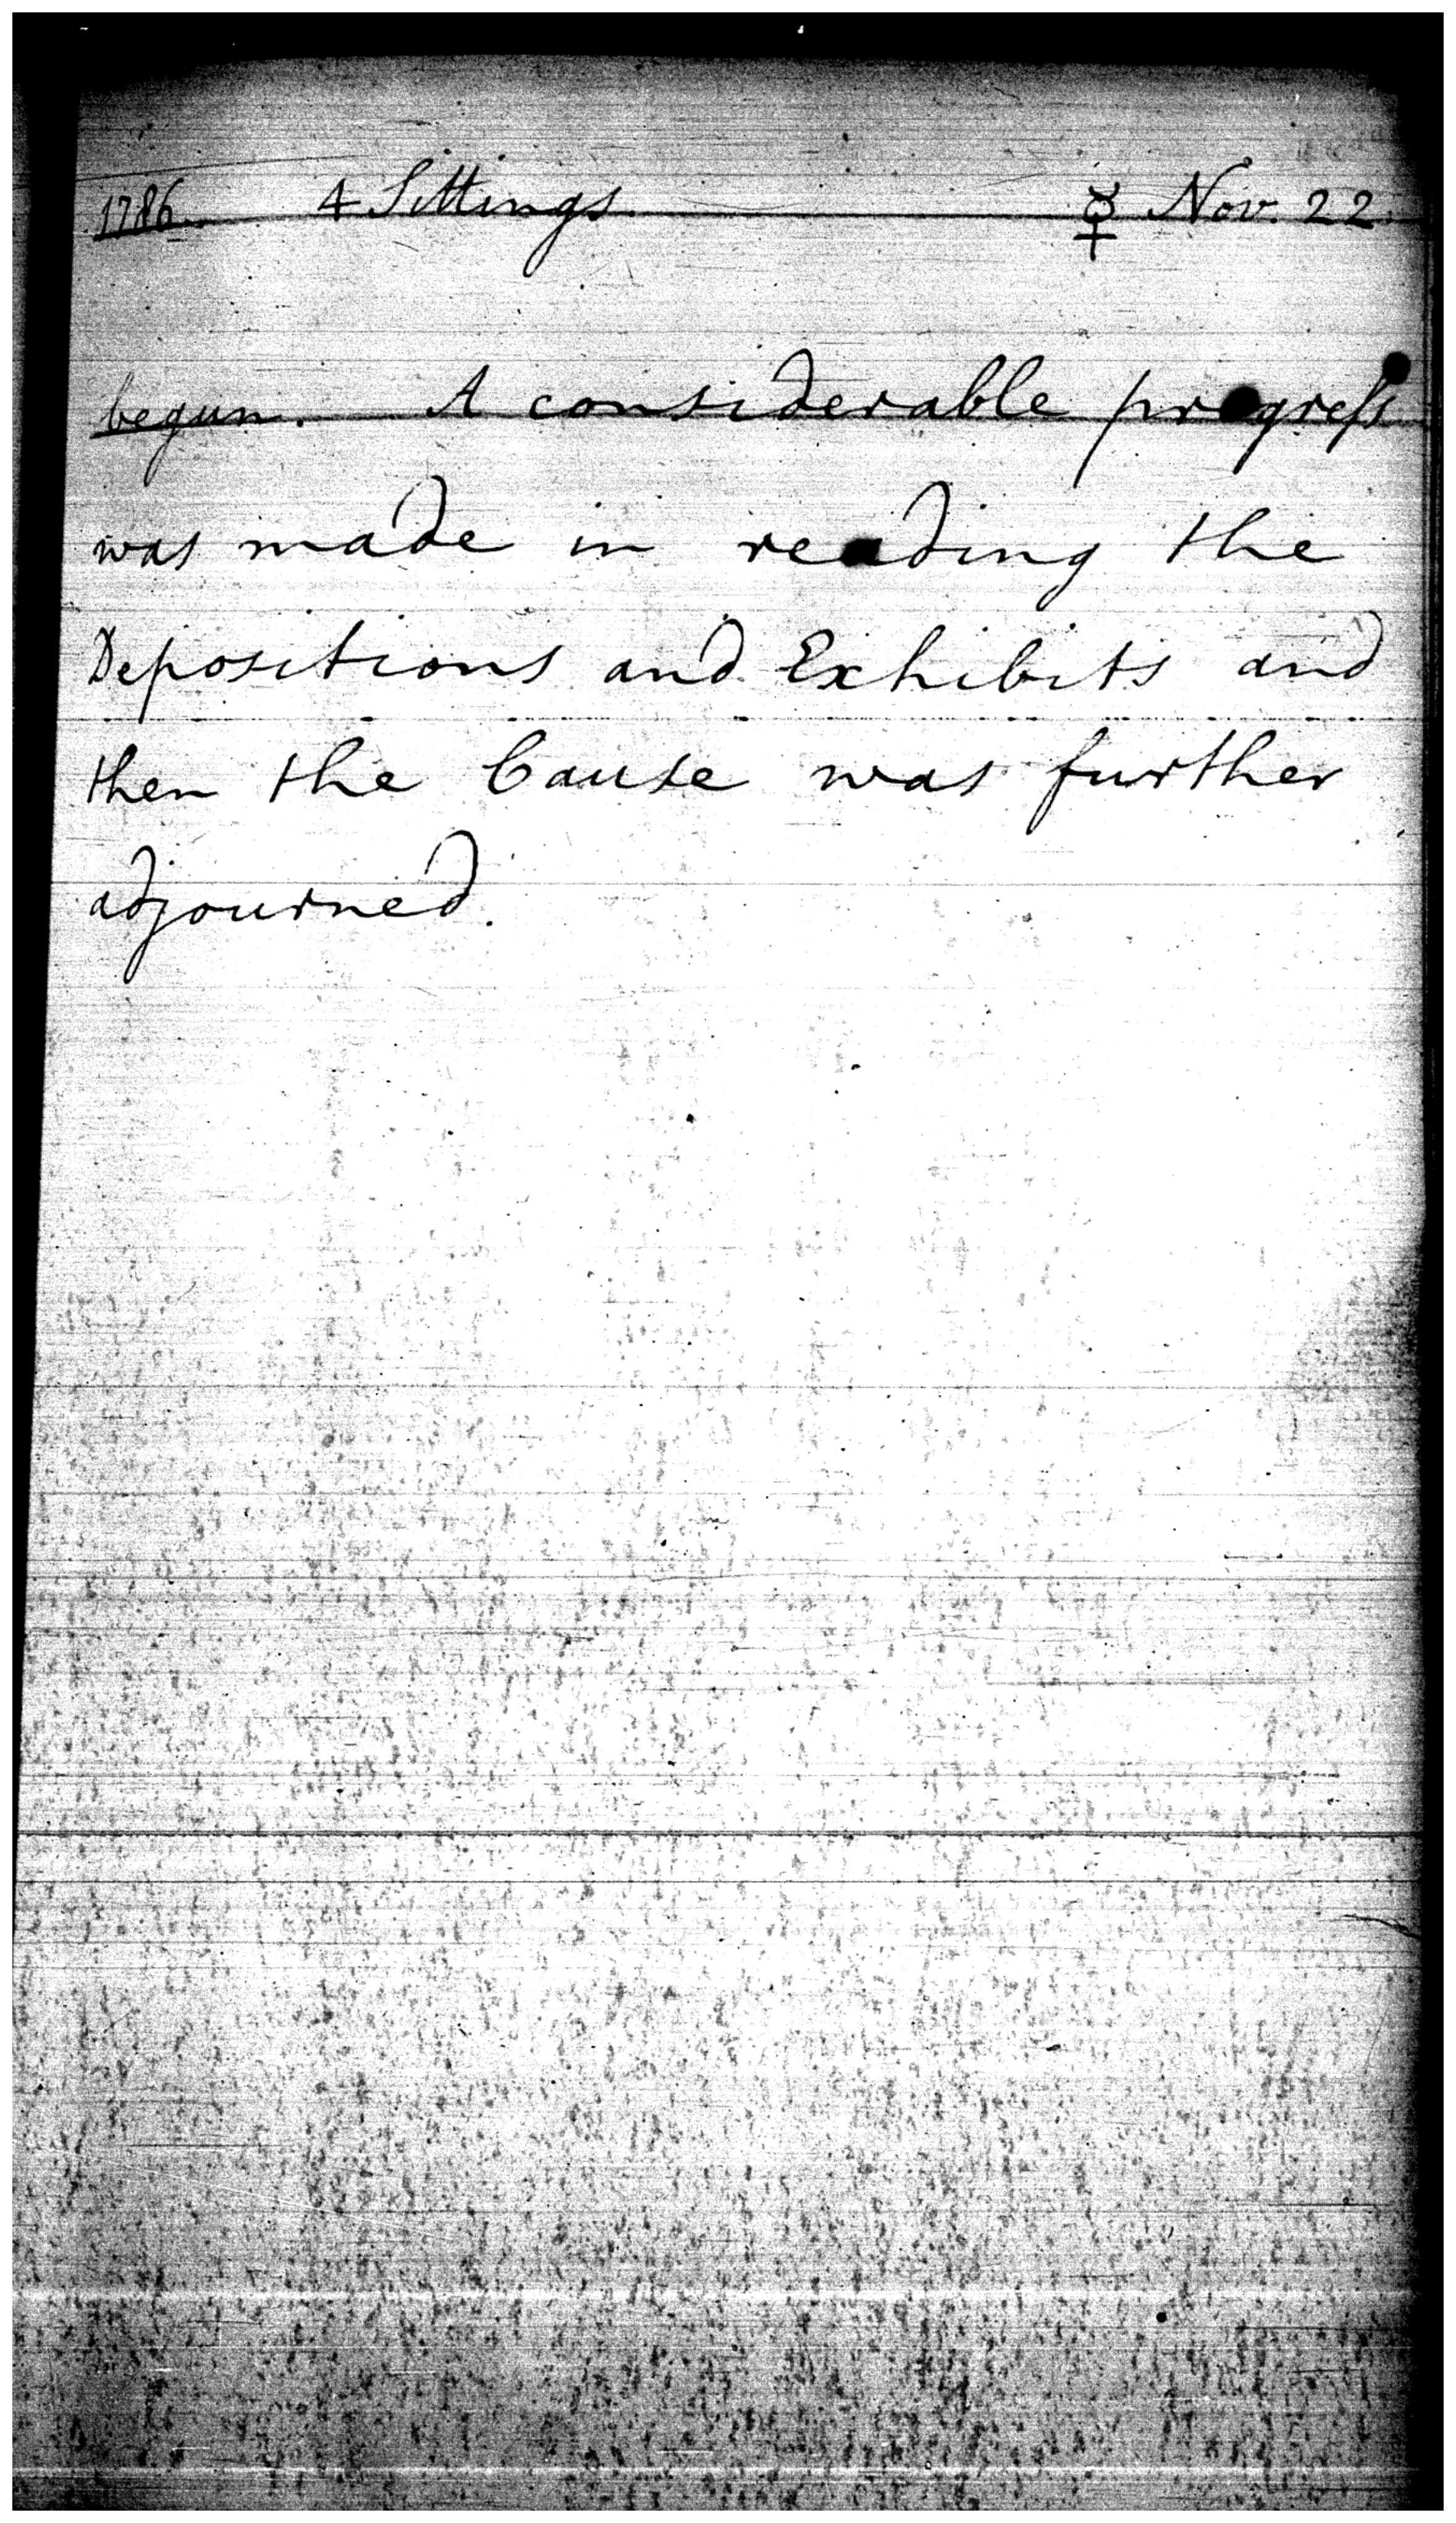 1786. 4 Sittings. ☿ Nov. 22.
begun. A considerable progreſs
was made in reading the
Depositions and Exhibits and
then the Cause was further
adjourned.